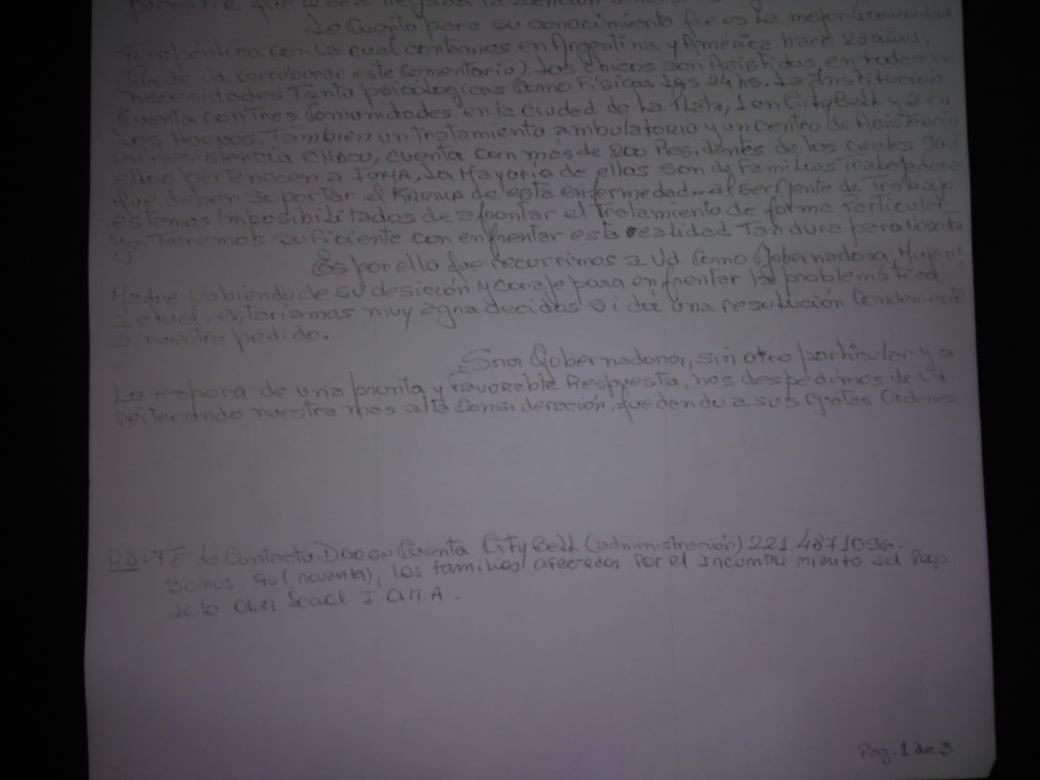 Le Cuento para su conocimiento que es la mejor Comunidad
Terapéutica con la cual contamos en Argentina y América hace 23 años,
(Puede Ud. corroborar este Comentario). Los chicos son Asistidos en todas
necesidades Tanto psicologicas Como Fisicas las 24 hs. La Institución
Cuenta con Tres Comunidades en la ciudad de La Plata, 1 en City Bell y 2 en
Los Hornos. También un Tratamiento ambulatorio y un centro de Asistencia
en Resistencia CHACO, cuenta con más de 200 Residentes de los cuales 90
ellos pertenecen a IOMA, La Mayoría de ellos son de Familias trabajadoras
que deben soportar el de esta enfermedad... al ser Gente de Trabajo
estamos imposibilitados de afrontar el Tratamiento de forma Particular
Ya Tenemos suficiente con enfrentar esta realidad Tan dura para
Es por ello que recurrimos a Ud Como Gobernadora, Mujer
Madre sabiendo de su desición y coraje para enfrentar la problemática
actual, estaríamos muy agradecidos si dá una resolución Conveniente
a nuestro pedido.
Sra Gobernadora, sin otro particular y a
La espera de una pronta y Favorable Respuesta, nos despedimos de Ud
reiterando nuestra mas alta Consideración, quedando a sus gratas Ordenes
TE de Contacto Cuenta City Bell (administración) 221 4871096.
Somos 90 (noventa), las familias afectadas por el Incumplimiento del Pago
de la Obra Social I.O.M.A.
Pag. 1 de 3